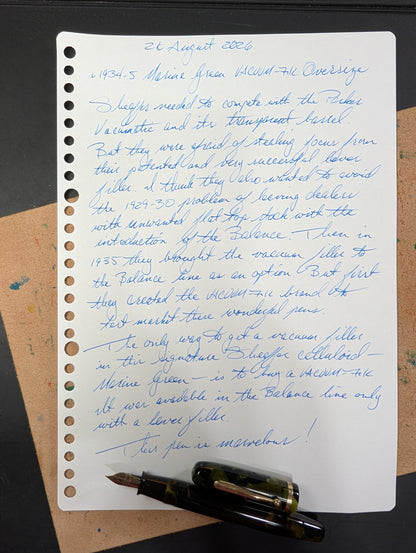 26 August 2026
~1934-5 Marine Green VACUUM-FIL Oversize
Sheaffer needed to compete with the Parker
Vacumatic and its transparent barrel.
But they were afraid of stealing focus from
their patented and very successful lever
filler. I think they also wanted to avoid
the 1929-30 problem of leaving dealers
with unwanted flat top stock with the
introduction of the Balance. Then in
1935 they brought the vacuum filler to
the Balance line as an option. But first
they created the VACUUM-FIL brand to
test market these wonderful pens.
The only way to get a vacuum filler
in this signature Sheaffer celluloid—
Marine green—is to buy a VACUUM-FIL
It was available in the Balance line only
with a lever filler.
This pen is marvelous!